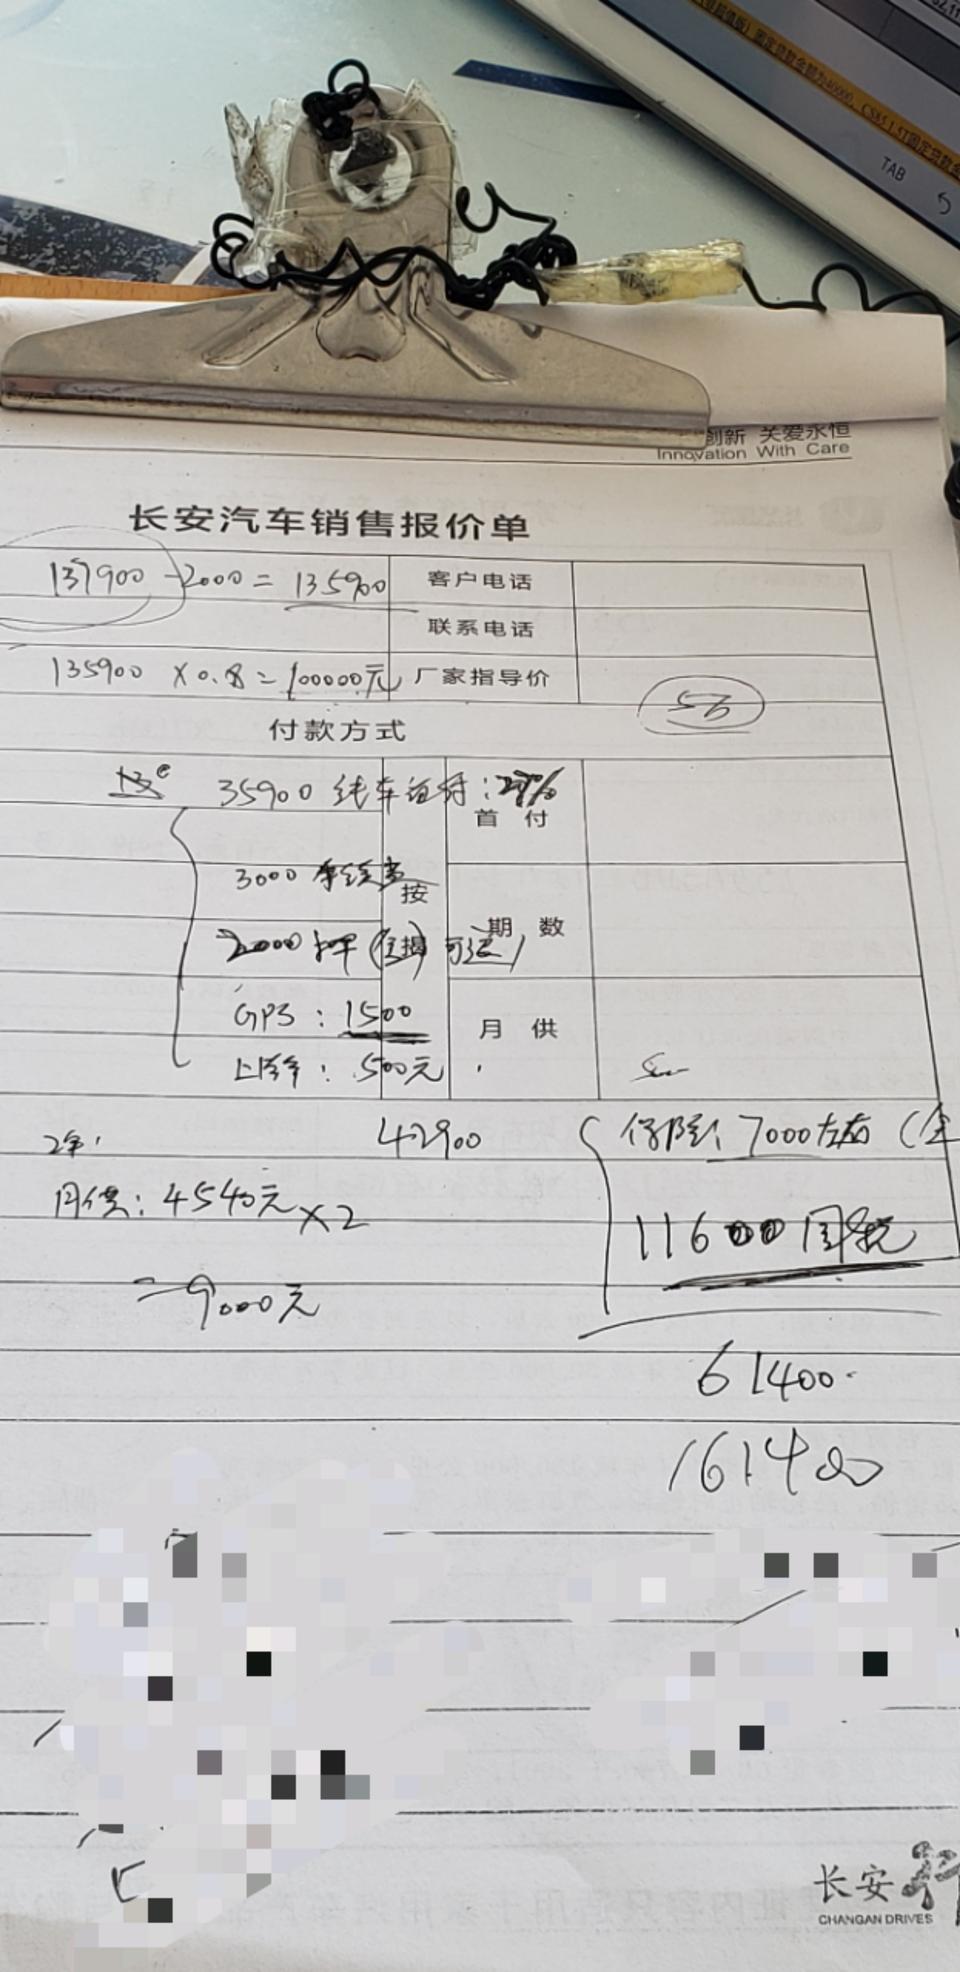 固定贷款金额为40000、CS85 1.5T固定贷款金
TAB
创新 关爱永恒
Innovation With Care
长安汽车销售报价单
137900 - 2000 = 135900 客户电话
联系电话
135900 × 0.8 = 100000元 厂家指导价
付款方式
35900 纯车首付:
首 付
3000 手续费
按
2000 押(可退)
揭
期 数
GPS: 1500
月 供
上牌: 500元
2年: 42900 保险: 7000左右 (全
月供: 4540元 ×2
11600 购置税
= 9000元
61400
161400
长安行
CHANGAN DRIVES